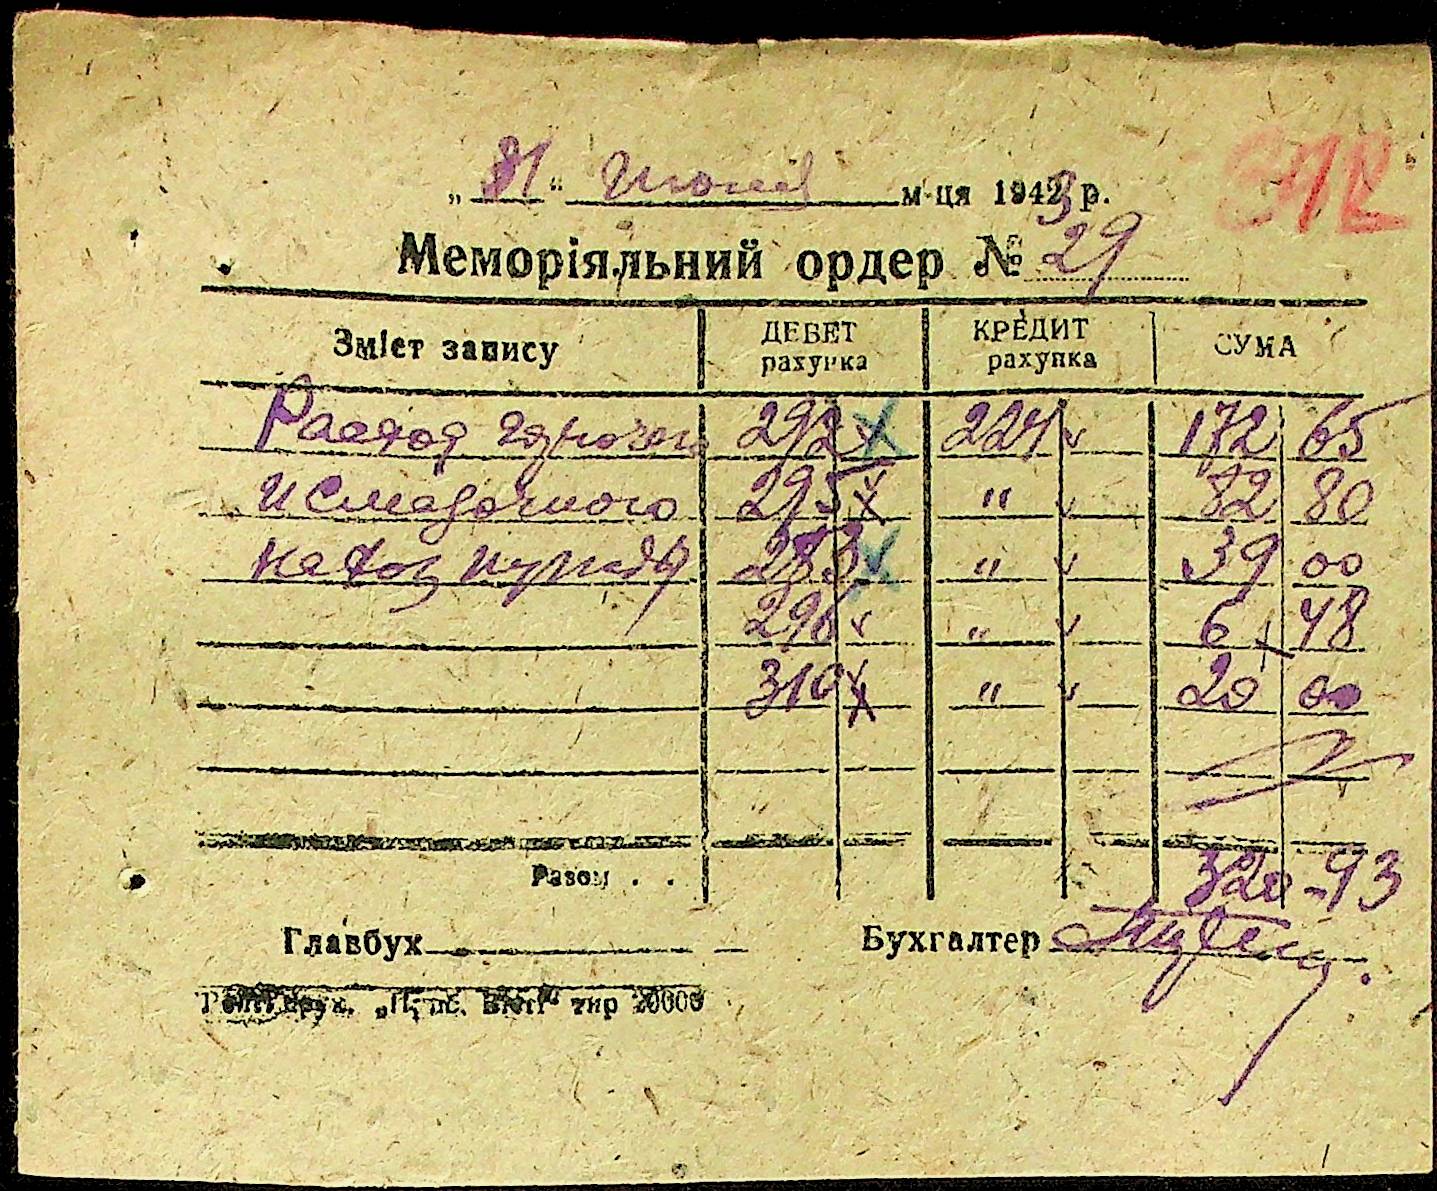 „31“ Июля м-ця 1943 р.
312
Меморіяльний ордер № 29
Зміст запису ДЕБЕТ рахунка КРЕДИТ рахунка СУМА
Расход горючего 292 224 172 65
и смазочного 295 " 82 80
на хоз нужды 283 " 39 00
296 " 6 48
310 " 20 00
Разом . . 320-93
Главбух Бухгалтер
тир 20000